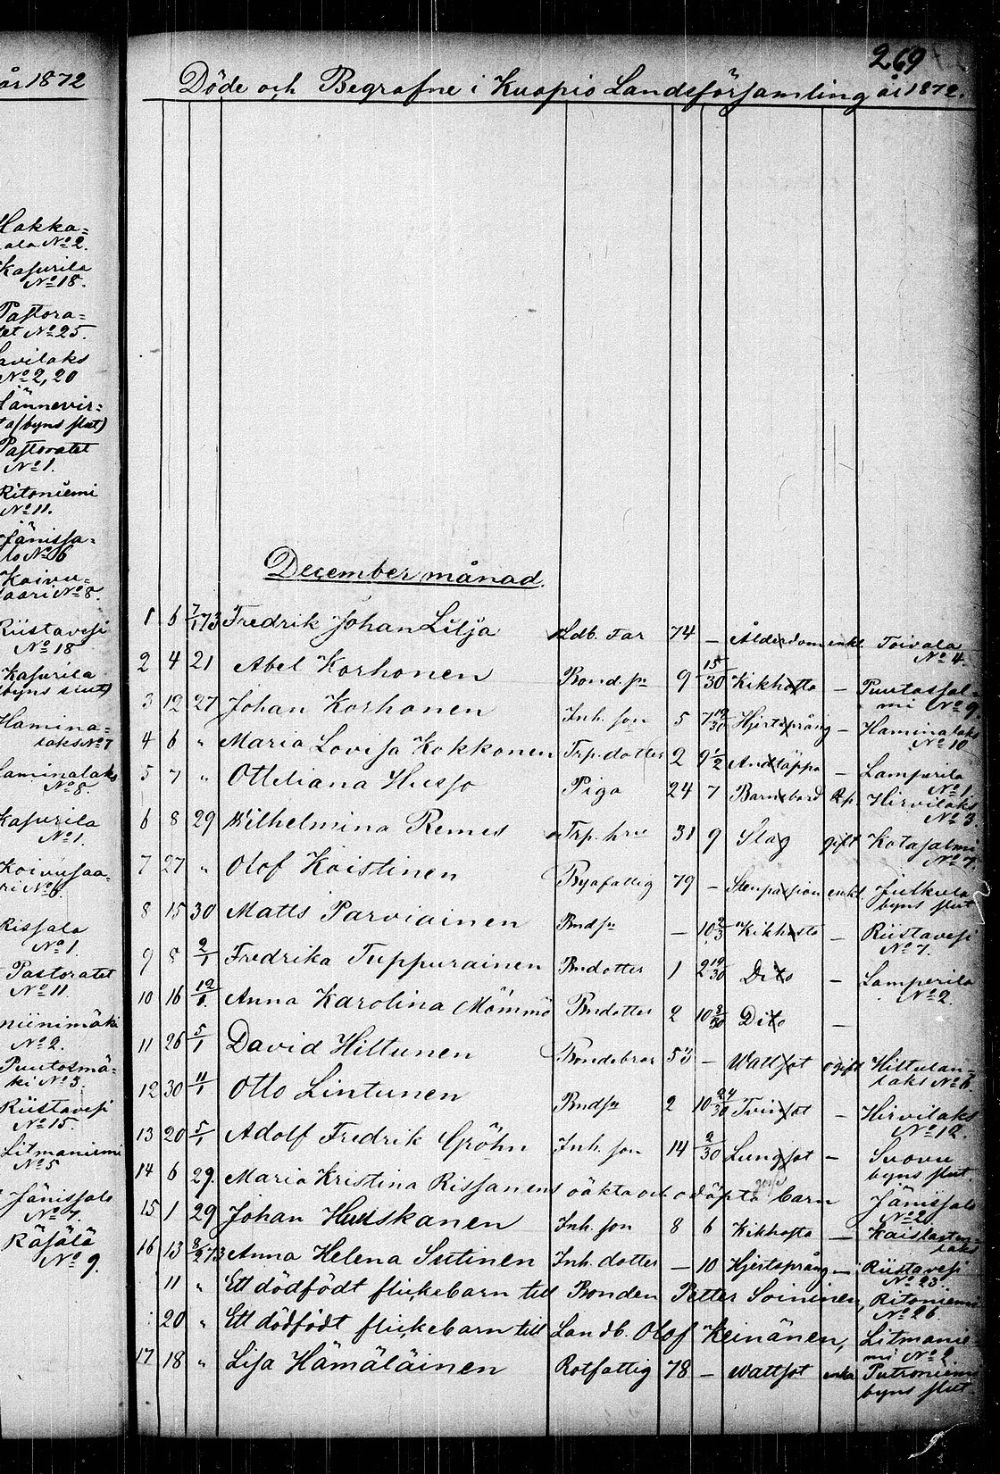 år 1872
Hakka=
ala No 2.
Kasurila
No 18.
Pastora=
tet No 25.
Savilaks
No 2, 20
Jännevir=
ta (byns slut)
Pastoratet
No 1.
Ritoniemi
No 11.
Jänissa=
lo No 16
Koivu=
saari No 8.
Riistavesi
No 18
Kasurila
byns slut)
Hamina=
laks No 7
Haminalaks
No 8.
Kasurila
No 1.
Koivusaa=
ri No 6.
Rissala
No 1.
Pastoratet
No 11.
niinimäki
No 2.
Puutosmä=
ki No 3.
Riistavesi
No 15.
Litmaniemi
No 5
Jänissalo
No 7.
Räsälä
No 9.
269
Döde och Begrafne i Kuopio Landsförsamling år 1872.
December månad.
1 6 7/1 73 Fredrik Johan Lilja Ldb. Far 74 — Ålderdom enkl. Toivala
No 4.
2 4 21 Abel Korhonen Bond. sn 9 15/30 Kikhosta — Puutossal=
mi No 9.
3 12 27 Johan Korhonen Inh. son 5 7 12/30 Hjertsprång — Haminalaks
No 10
4 6 " Maria Lovisa Kokkonen Trp. dotter 2 9 1/2 Andtäppa — Lamperila
No 1.
5 7 " Ottiliana Husso Piga 24 7 Barnsbörd Hirvilaks
No 3.
6 8 29 Wilhelmina Remes Trp. hru 31 9 Slag gift Kotasalmi
No 7.
7 27 " Olof Koistinen Byafattig 79 — Stenpassion enkl. Julkula
byns slut
8 15 30 Matts Parviainen Bndsn — 10 2/3 Kikhosta — Riistavesi
No 7.
9 8 2/1 Fredrika Tuppurainen Bndotter 1 2 19/30 Dito — Lamperila
No 2.
10 16 12/1 Anna Karolina Mömmö Bndotter 2 10 2/30 Dito —
11 26 5/1 David Hiltunen Bondebror 53 — Wattsot ogift Hiltulan=
laks No 6
12 30 11/1 Otto Lintunen Bndsn 2 10 24/30 Tvinsot — Hirvilaks
No 12.
13 20 5/1 Adolf Fredrik Gröhn Inh. son 14 2/30 Lungsot — Suovu
byns slut.
14 6 29. Maria Kristina Rissanens oäkta och odöpta barn Jänissalo
No 2
15 1 29 Johan Huuskanen Inh. son 8 6 Kikhosta — Kaislasten=
laks
16 13 8/2 73 Anna Helena Sutinen Inh. dotter — 10 Hjertsprång — Riistavesi
No 23
11 " Ett dödfödt flickebarn till Bonden Petter Soininen, Ritoniemi
No 26.
20 " Ett dödfödt flickebarn till Landb. Olof Keinänen, Litmanie=
mi No 2.
17 18 " Lisa Hämäläinen Rotfattig 78 — Wattsot enka Putroniemi
byns slut